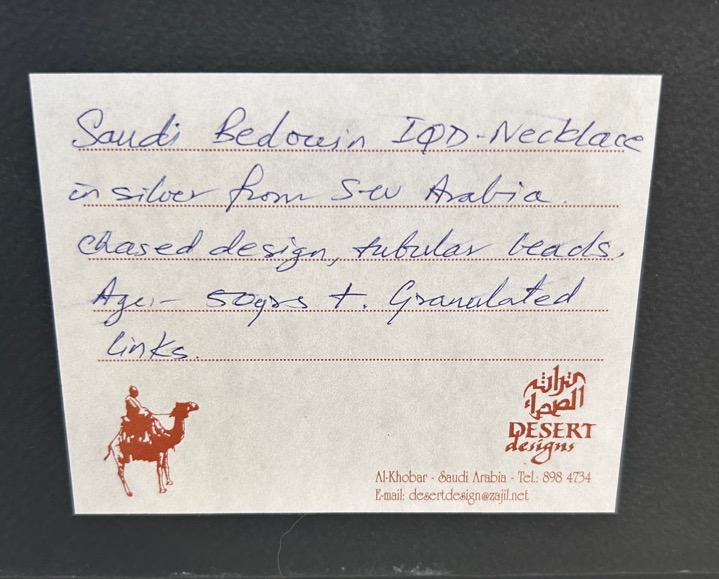 Saudi Bedouin IQD-Necklace
in silver from S-W Arabia.
chased design, tubular beads.
Age:- 50yrs +. Granulated
links.
تراث
الصحراء
DESERT
designs
Al-Khobar - Saudi Arabia - Tel.: 898 4734
E-mail: desertdesign@zajil.net